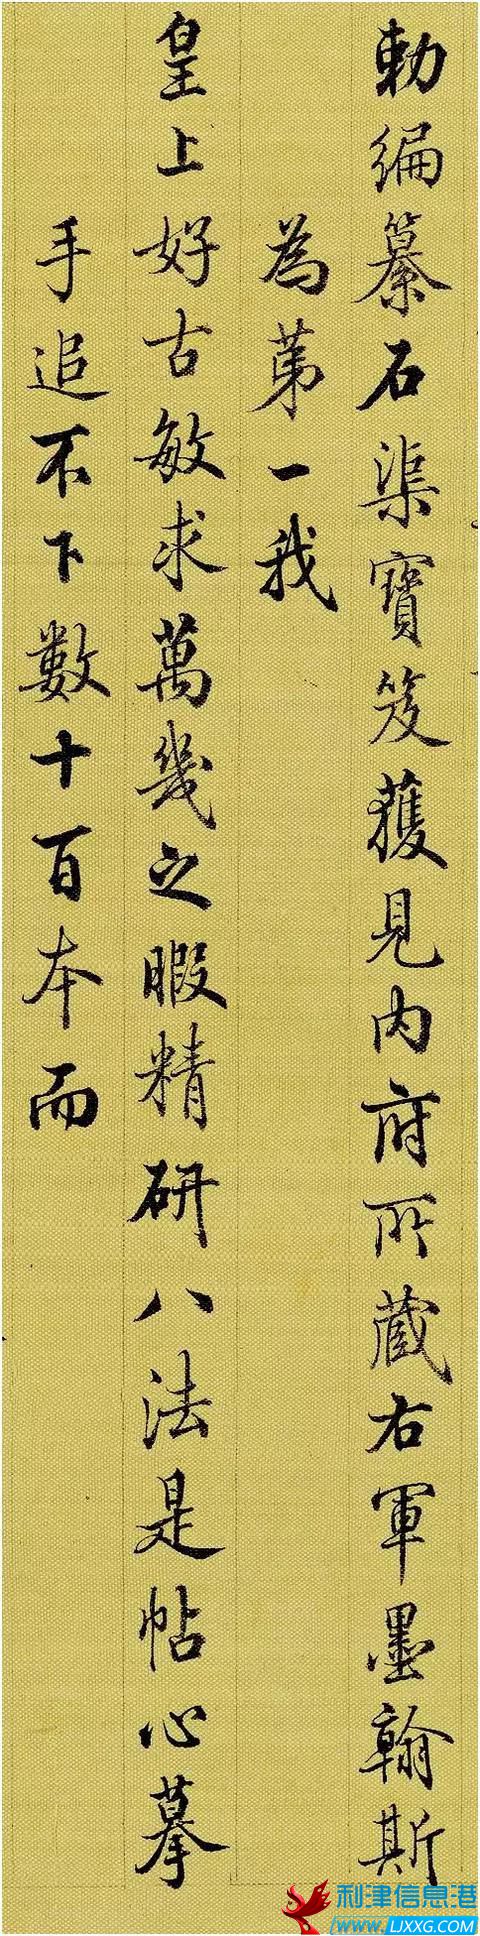 勅編纂石渠寶笈獲見内府所蔵右軍墨翰斯
為苐一我
皇上好古敏求萬幾之暇精研八法是帖心摹
手追不下數十百本而
利津信息港
www.LJXXG.COM